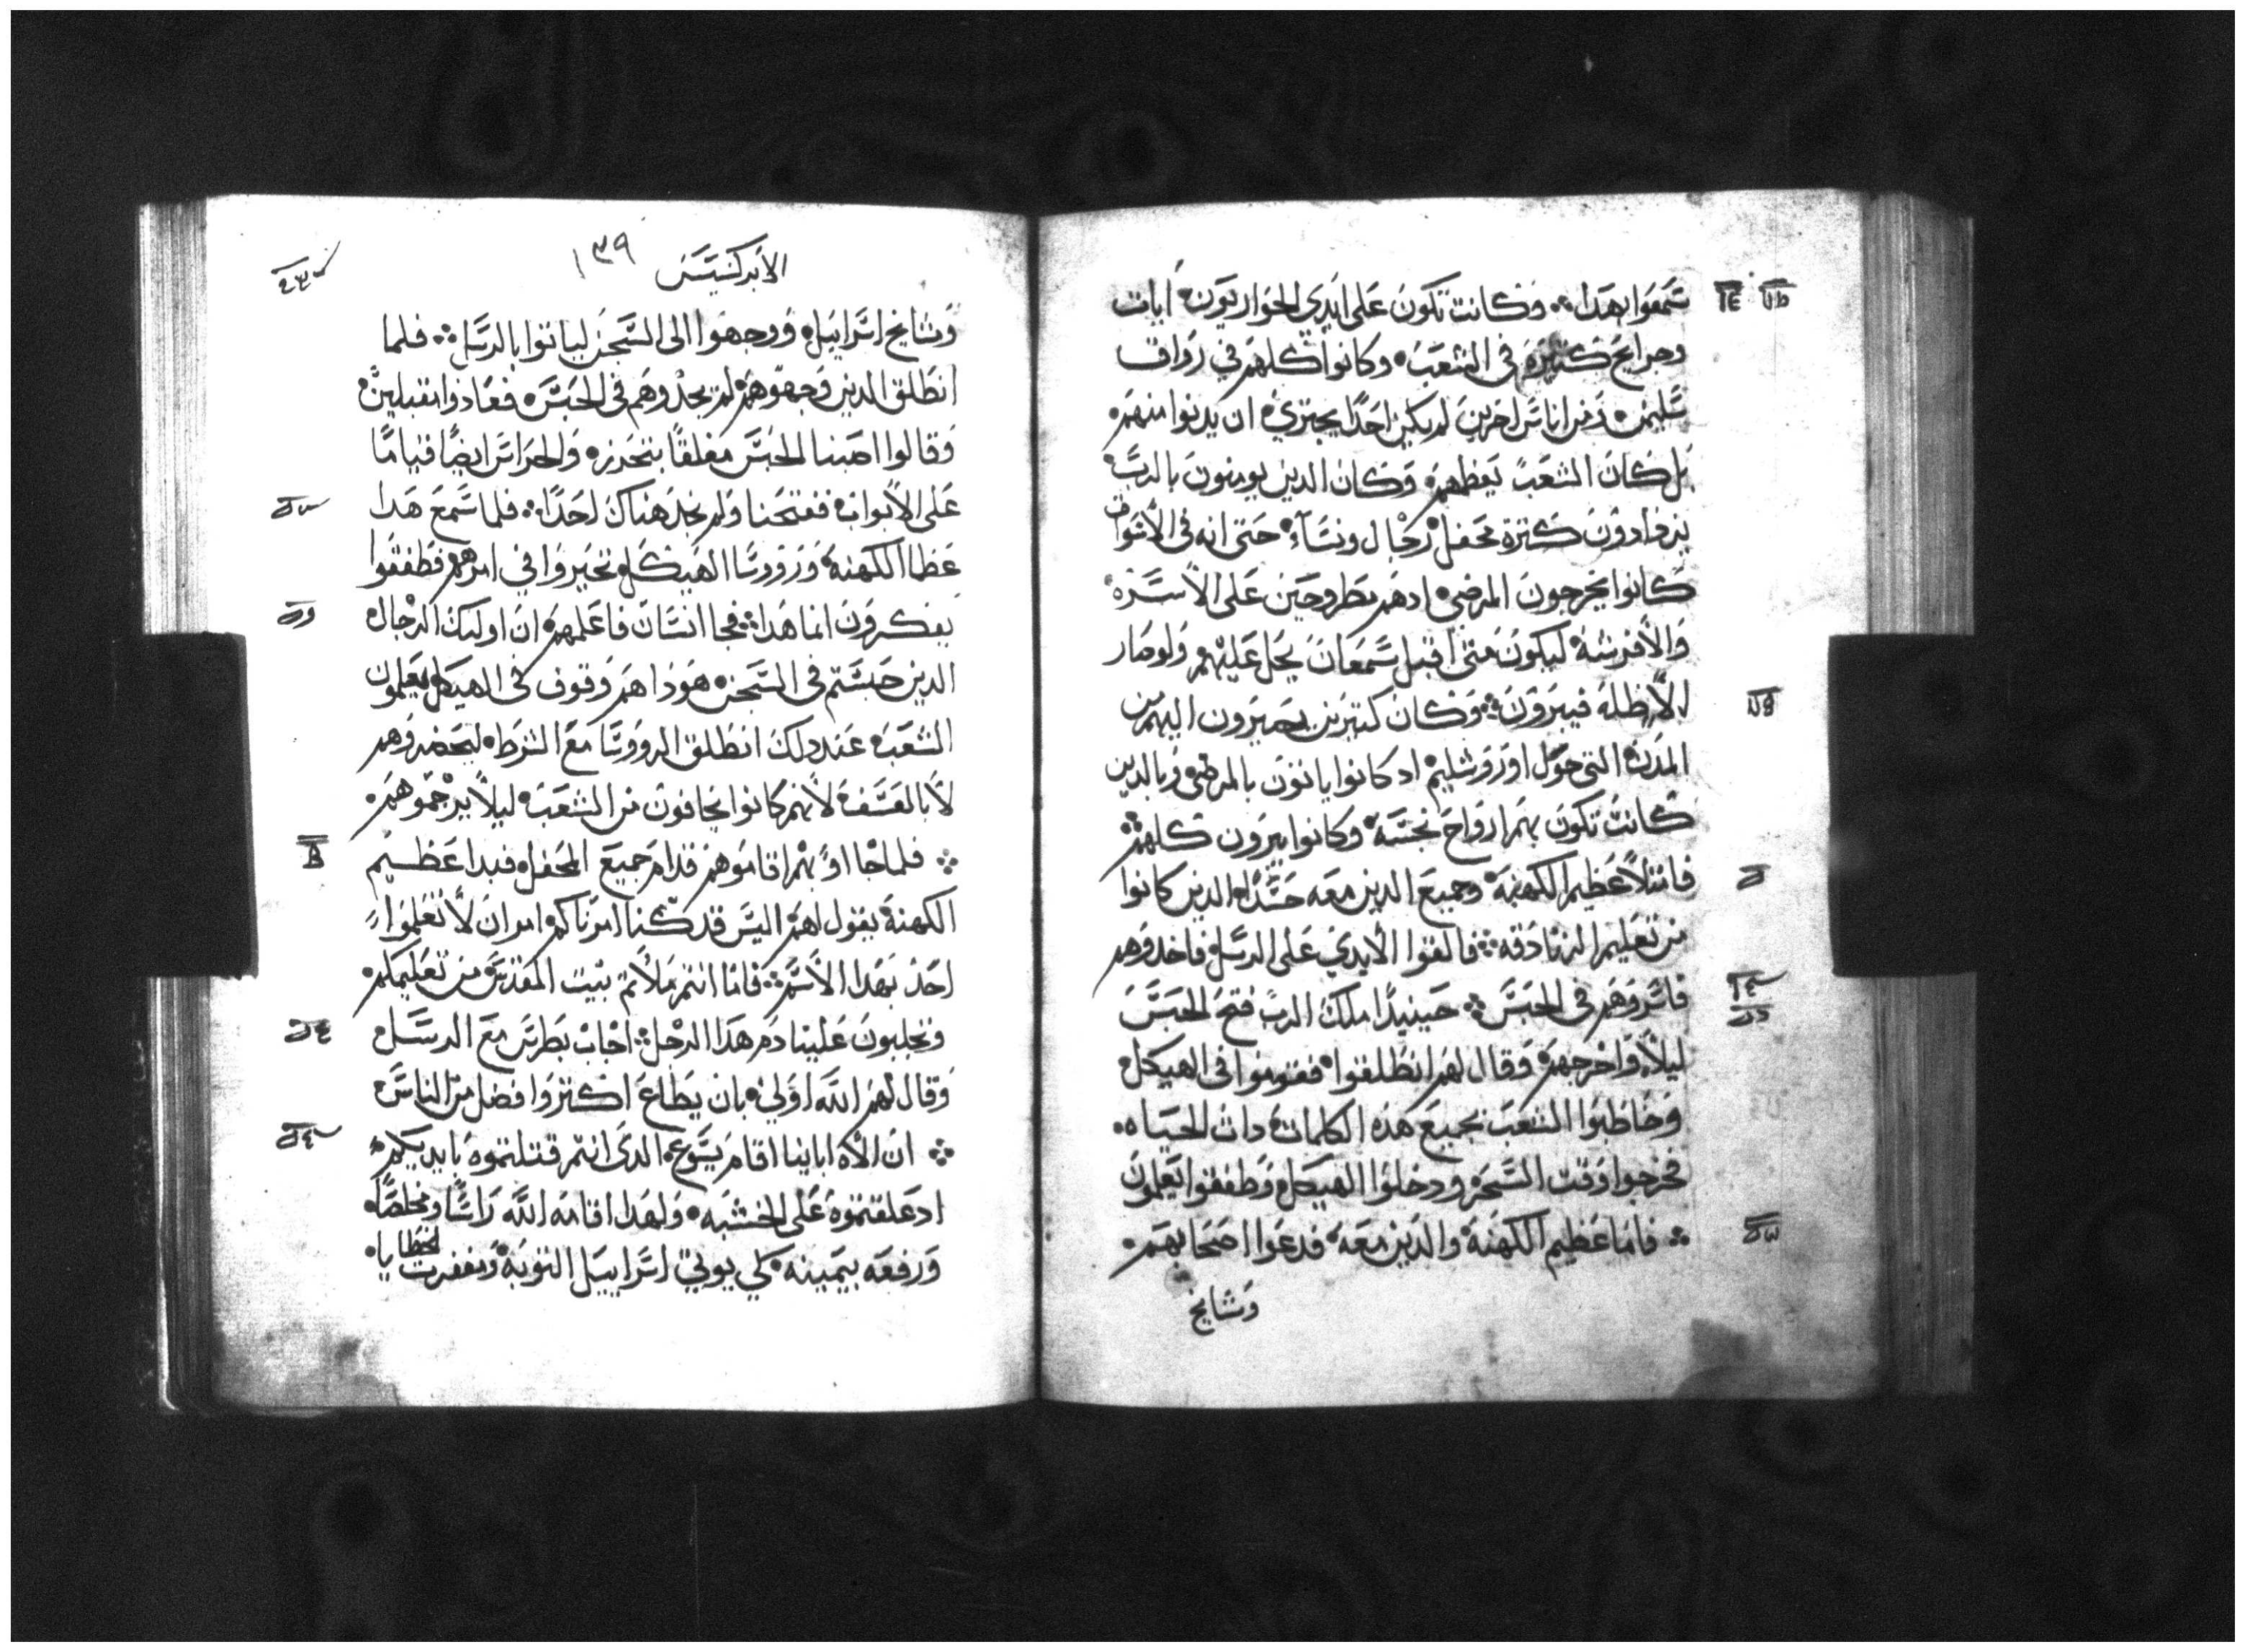 سمعوا بهدا وكانت تكون على ايدي الحواريون ايات
وجرايح كتيرة في الشعب وكانوا كلهم في رواق
سليمن ومن اناس اخرين لم يكن احدًا يجتري ان يدنوا منهم
بل كان الشعب يعظمهم وكان الدين يومنون بالرب
يزدادون كترة محفل رجال ونسآء حتى انه في الأسواق
كانوا يخرجون المرضي ادهم مطروحين على الأسرة
والأفرشة ليكون متى اقبل سمعان يحل عليهم ولو صار
الأظله فيبرون وكان كتيرين يصيرون اليهم من
المدن التي حول اورورشليم اد كانوا ياتون بالمرضي وبالدين
كانت تكون بهم ارواح نجسة وكانوا يبرون كلهم
فامتلأ عظيم الكهنة وجميع الدين معه حسدًا الدين كانوا
من تعليم الزنادقه فالقوا الأيدي على الرسل فاخدوهم
فاسروهم في الحبس حينيدًا ملك الرب فتح الحبس
ليلاً واخرجهم وقال لهم انطلقوا فقوموا في الهيكل
وخاطبوا الشعب بجميع هده الكلمات دات الحياه
فخرجوا وقت السحر ودخلوا الهيكل وطفقوا يعلمون
فاما عظيم الكهنة والدين معه فدعوا اصحابهم
ومشايخ
الأبركسيس
١٣٩
ومشايخ اسراييل ووجهوا الى السجن لياتوا بالرسل فلما
انطلق الدين وجهوهم لم يجدوهم في الحبس فعادوا مقبلين
وقالوا اصبنا الحبس مغلقًا بتحرز والحراس ايضًا قيامًا
على الأبواب ففتحنا ولم نجد هناك احدًا فلما سمع هدا
عظما الكهنة وروسا الهيكل تحيروا في امرهم فطفقوا
يفكرون انما هدا فجا انسان فاعلمهم ان اوليك الرجال
الدين حبستم في السجن هودا هم وقوف في الهيكل يعلمون
الشعب عند دلك انطلق الروسا مع الشرط ليحضروهم
لا بالعسف لأنهم كانوا يخافون من الشعب ليلاً يرجموهم
فلما جاا وبهم اقاموهم قدام جميع المحفل فبدا عظيم
الكهنة يقول لهم اليس قد كنا امرناكم امرا ان لا تعلموا
احد بهدا الأسم فاما انتم ملأتم بيت المقدس من تعليمكم
وتجلبون علينا دم هدا الرجل اجاب بطرس مع الرسل
وقال لهم الله اولي بان يطاع اكتر وافضل من الناس
ان الأه اباينا اقام يسوع الدي انتم قتلتموه بايديكم
اد علقتموه على الخشبه ولهدا اقامه الله راسًا ومخلصًا
ورفعه بيمينه كي يوتي اسراييل التوبة ومغفرت الخطايا